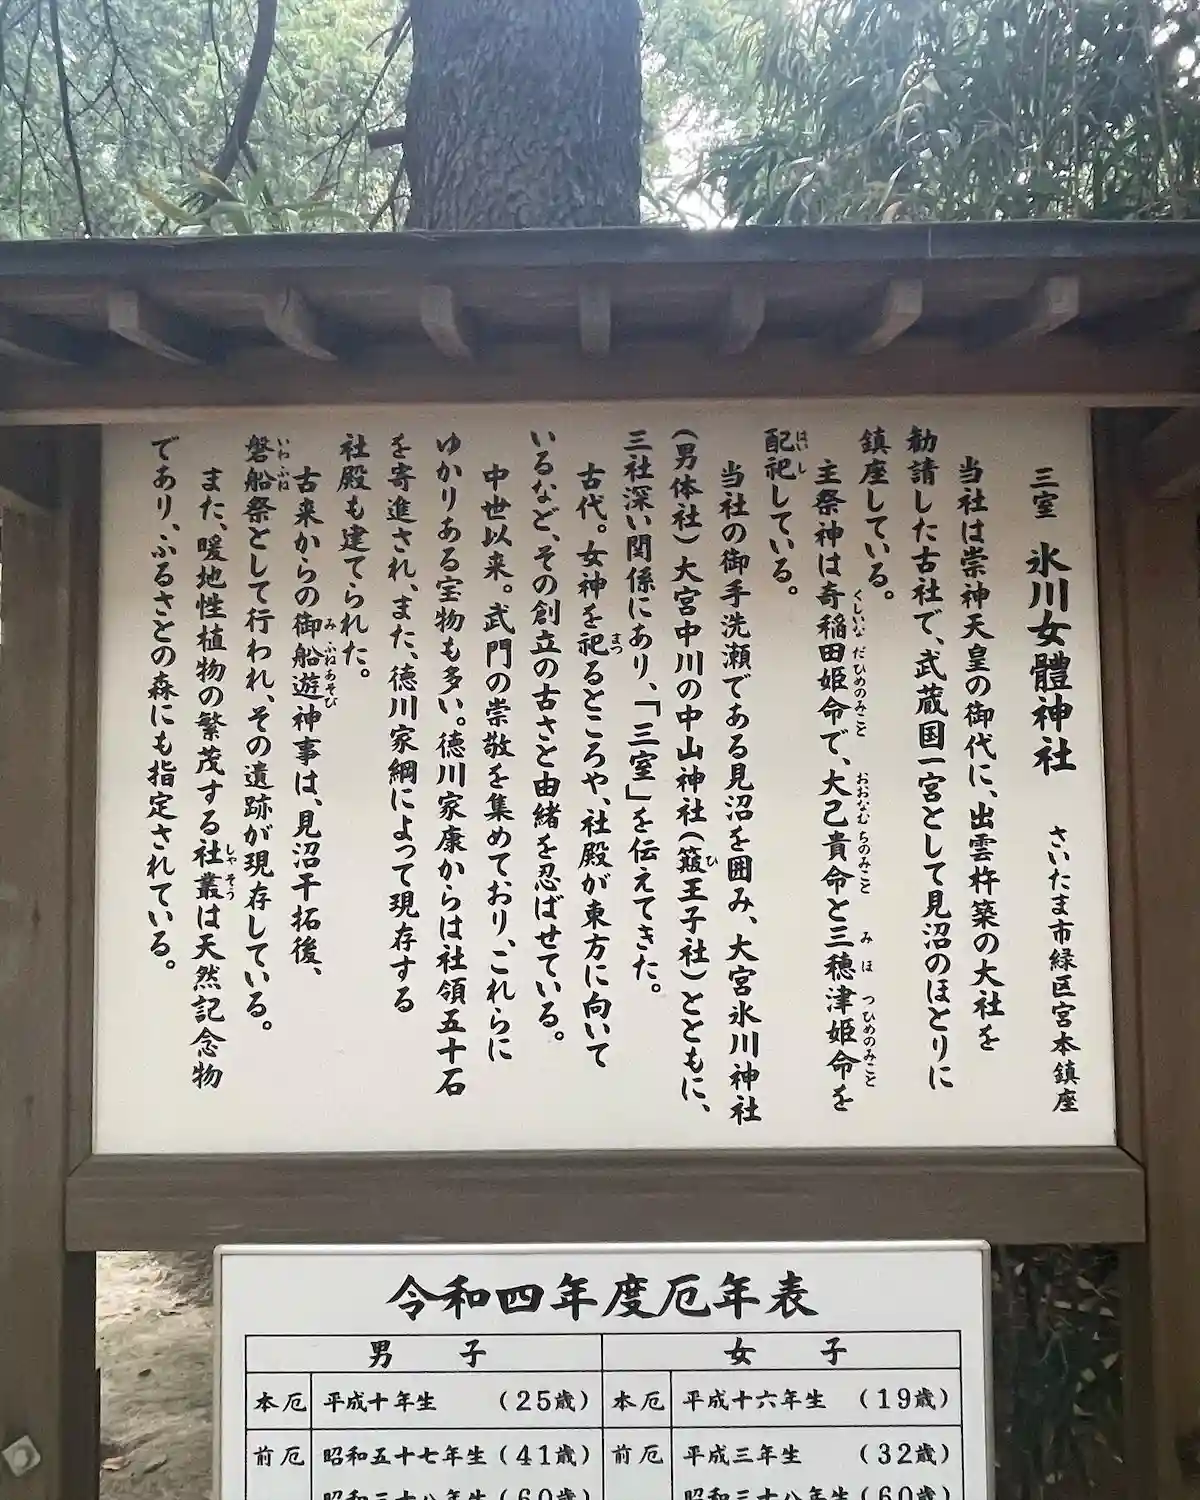 三室 氷川女體神社 さいたま市緑区宮本鎮座
当社は崇神天皇の御代に、出雲杵築の大社を
勧請した古社で、武蔵国一宮として見沼のほとりに
鎮座している。
主祭神は奇稲田姫命で、大己貴命と三穂津姫命を
配祀している。
当社の御手洗瀬である見沼を囲み、大宮氷川神社
(男体社)大宮中川の中山神社(簸王子社)とともに、
三社深い関係にあり、「三室」を伝えてきた。
古代。女神を祀るところや、社殿が東方に向いて
いるなど、その創立の古さと由緒を忍ばせている。
中世以来。武門の崇敬を集めており、これらに
ゆかりある宝物も多い。徳川家康からは社領五十石
を寄進され、また、徳川家綱によって現存する
社殿も建てられた。
古来からの御船遊神事は、見沼干拓後、
磐船祭として行われ、その遺跡が現存している。
また、暖地性植物の繁茂する社叢は天然記念物
であり、ふるさとの森にも指定されている。
令和四年度厄年表
男子 女子
本厄 平成十年生 (25歳) 本厄 平成十六年生 (19歳)
前厄 昭和五十七年生 (41歳) 前厄 平成三年生 (32歳)
昭和三十八年生 (60歳) 昭和三十八年生 (60歳)